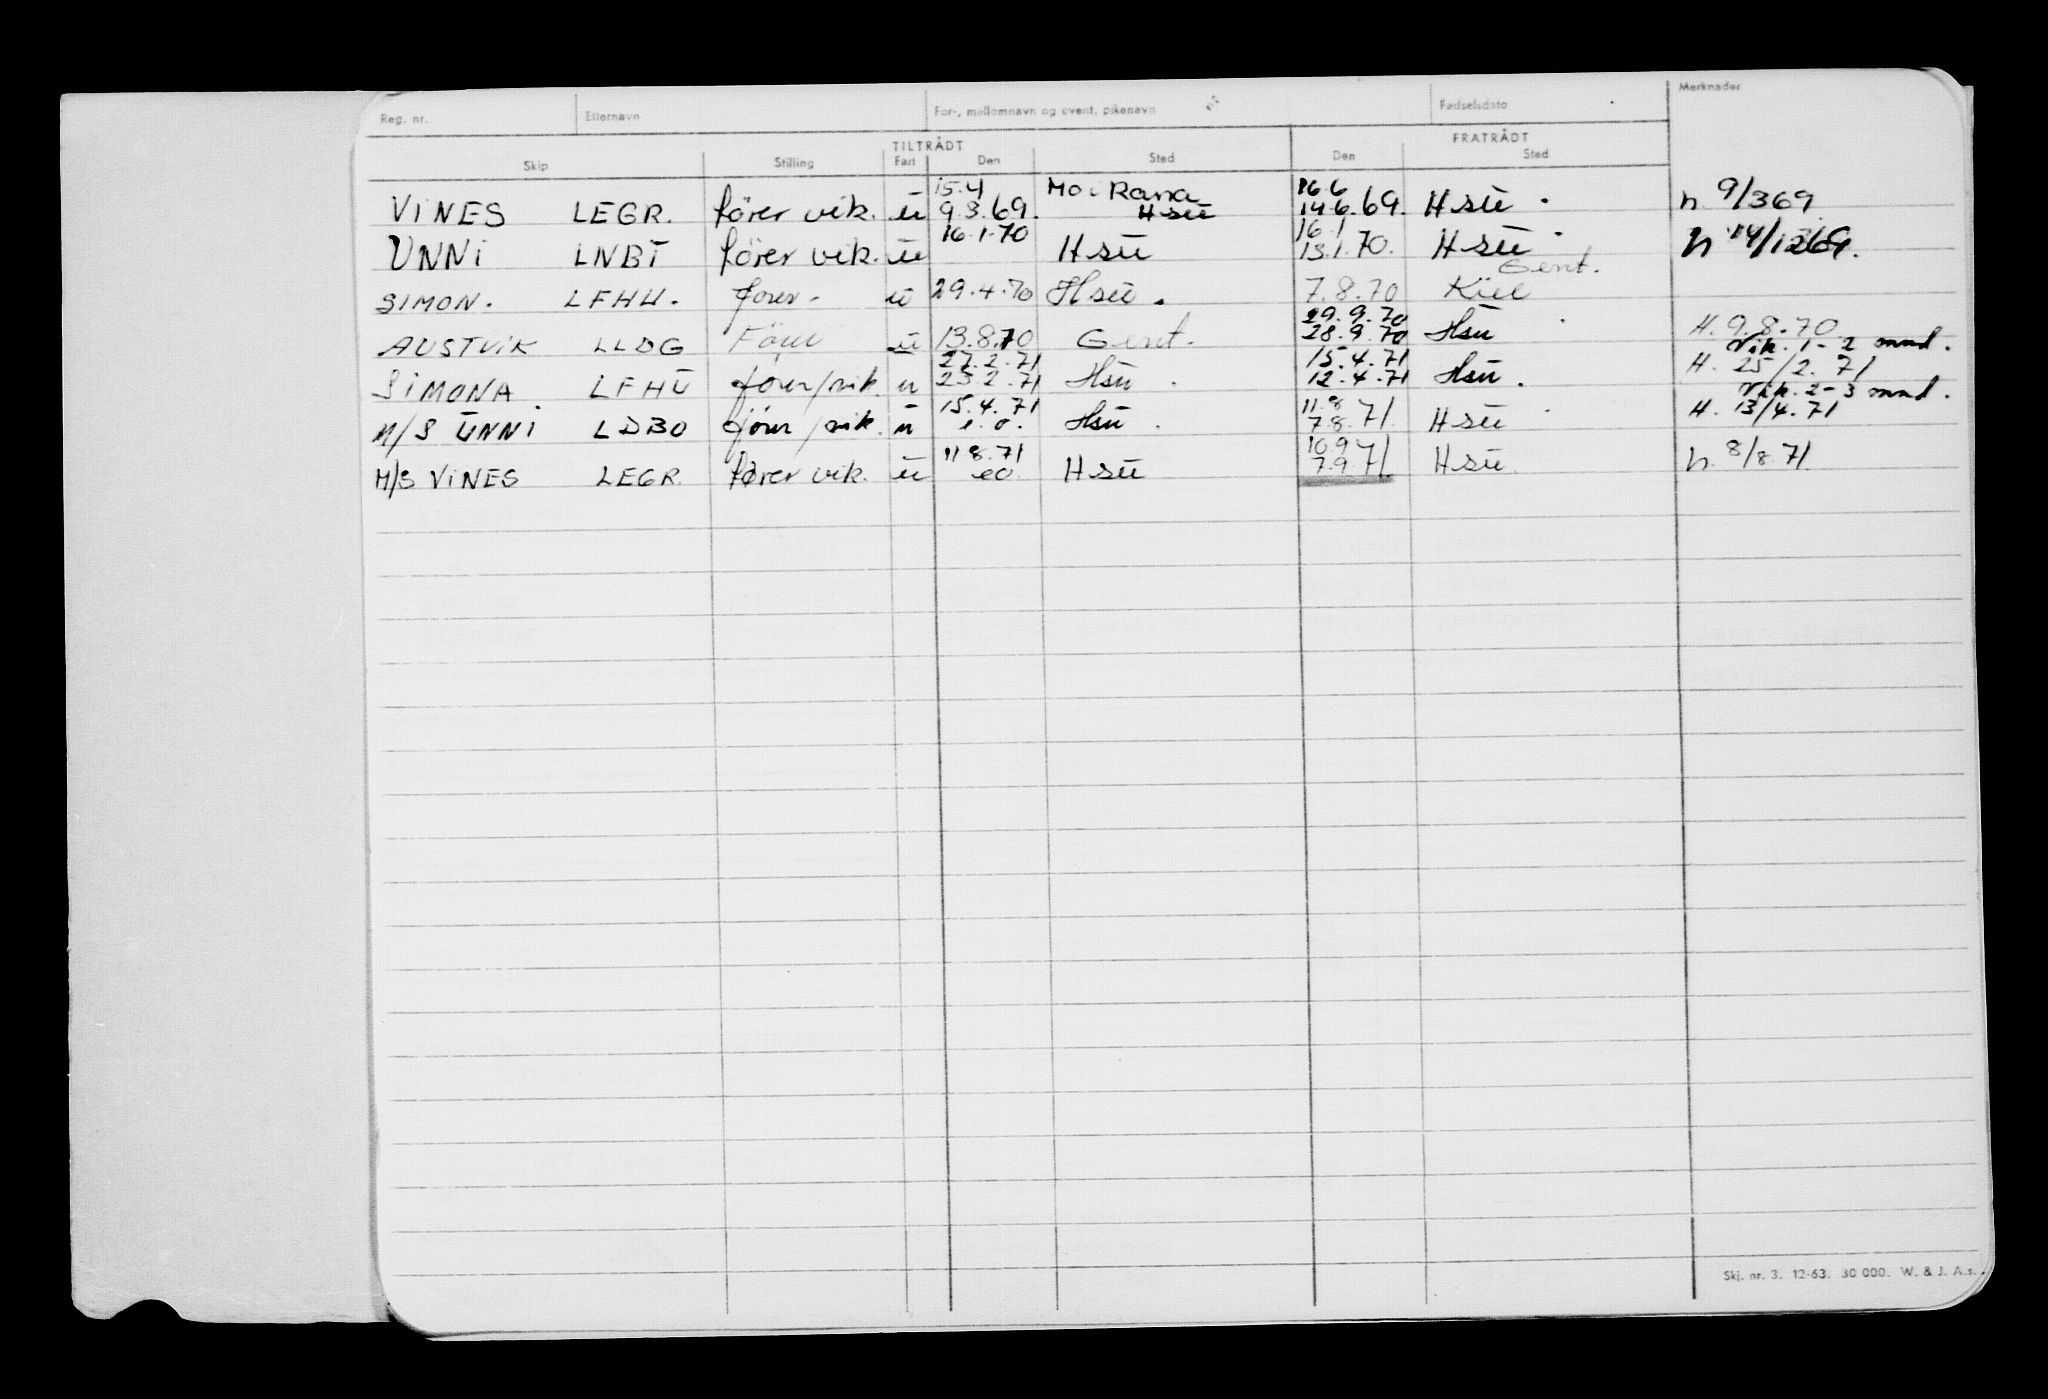 Reg. nr. Etternavn For-, mellomnavn og event. pikenavn Fødselsdato Merknader
TILTRÅDT FRATRÅDT
Skip Stilling Fart Den Sted Den Sted
15.4 Mo i Rana 16.6
VINES LEGR. fører vik. u 9.3.69. Hsu 14.6.69. Hsu . n. 9/369
16.1.70 16.1
UNNI LNBI fører vik. u Hsu 13.1.70. Hsu n 14/1269.
Gent.
SIMON. LFHU. fører. u 29.4.70 Hsu . 7.8.70 Kiel
29.9.70
AUSTVIK LLDG Fører u 13.8.70 Gent. 28.9.70 Hsu H. 9.8.70
27.2.71 15.4.71 Vik. 1-2 mnd.
SIMONA LFHU fører/vik. u 25.2.71 Hsu . 12.4.71 Hsu . H. 25/2.71
15.4.71 11.8 Vik. 2-3 mnd.
M/S UNNI LDBO fører/vik. u e.o. Hsu . 7.8.71. Hsu H. 13/4.71
11.8.71 10.9
M/S VINES LEGR fører vik. u eo. Hsu 7.9.71 Hsu n. 8/8.71.
Skj. nr. 3. 12-63. 30 000. W. & J. A.s.